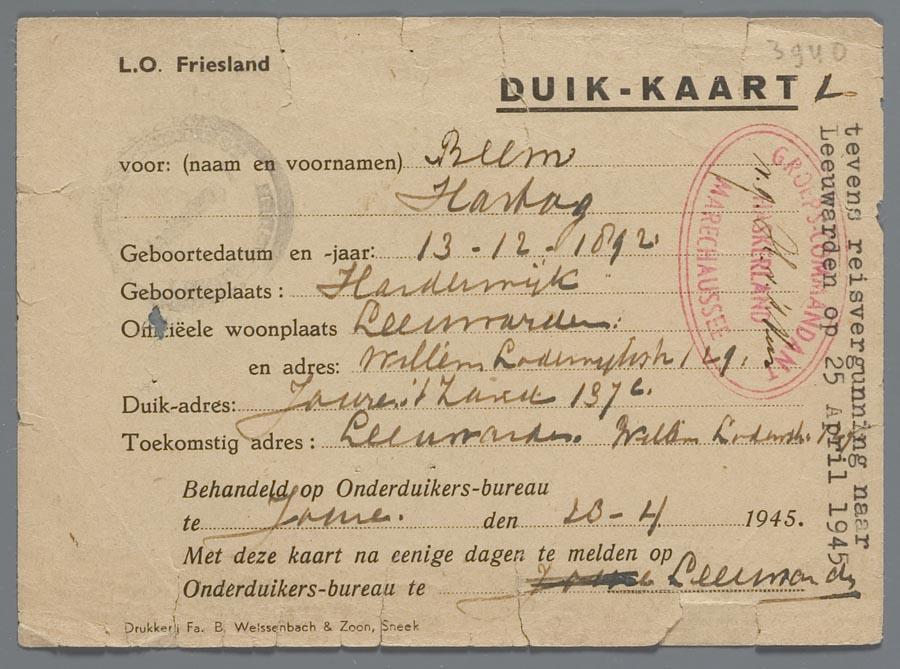 3940
L.O. Friesland
DUIK-KAART L
voor: (naam en voornamen) Beem
Hartog
Geboortedatum en -jaar: 13-12-1892
Geboorteplaats: Harderwijk
Officiëele woonplaats Leeuwarden.
en adres: Willem Lodewijkstr 149.
Duik-adres: Joure
Toekomstig adres: Leeuwarden. Willem Lodewstr.
Behandeld op Onderduikers-bureau
te Joure. den 23-4 1945.
Met deze kaart na eenige dagen te melden op
Onderduikers-bureau te Joure Leeuwarden
Drukkerij Fa. B. Weissenbach & Zoon, Sneek
GROEPS-COMMANDANT
HASKERLAND
MARECHAUSSEE
tevens reisvergunning naar
Leeuwarden op 25 April 1945